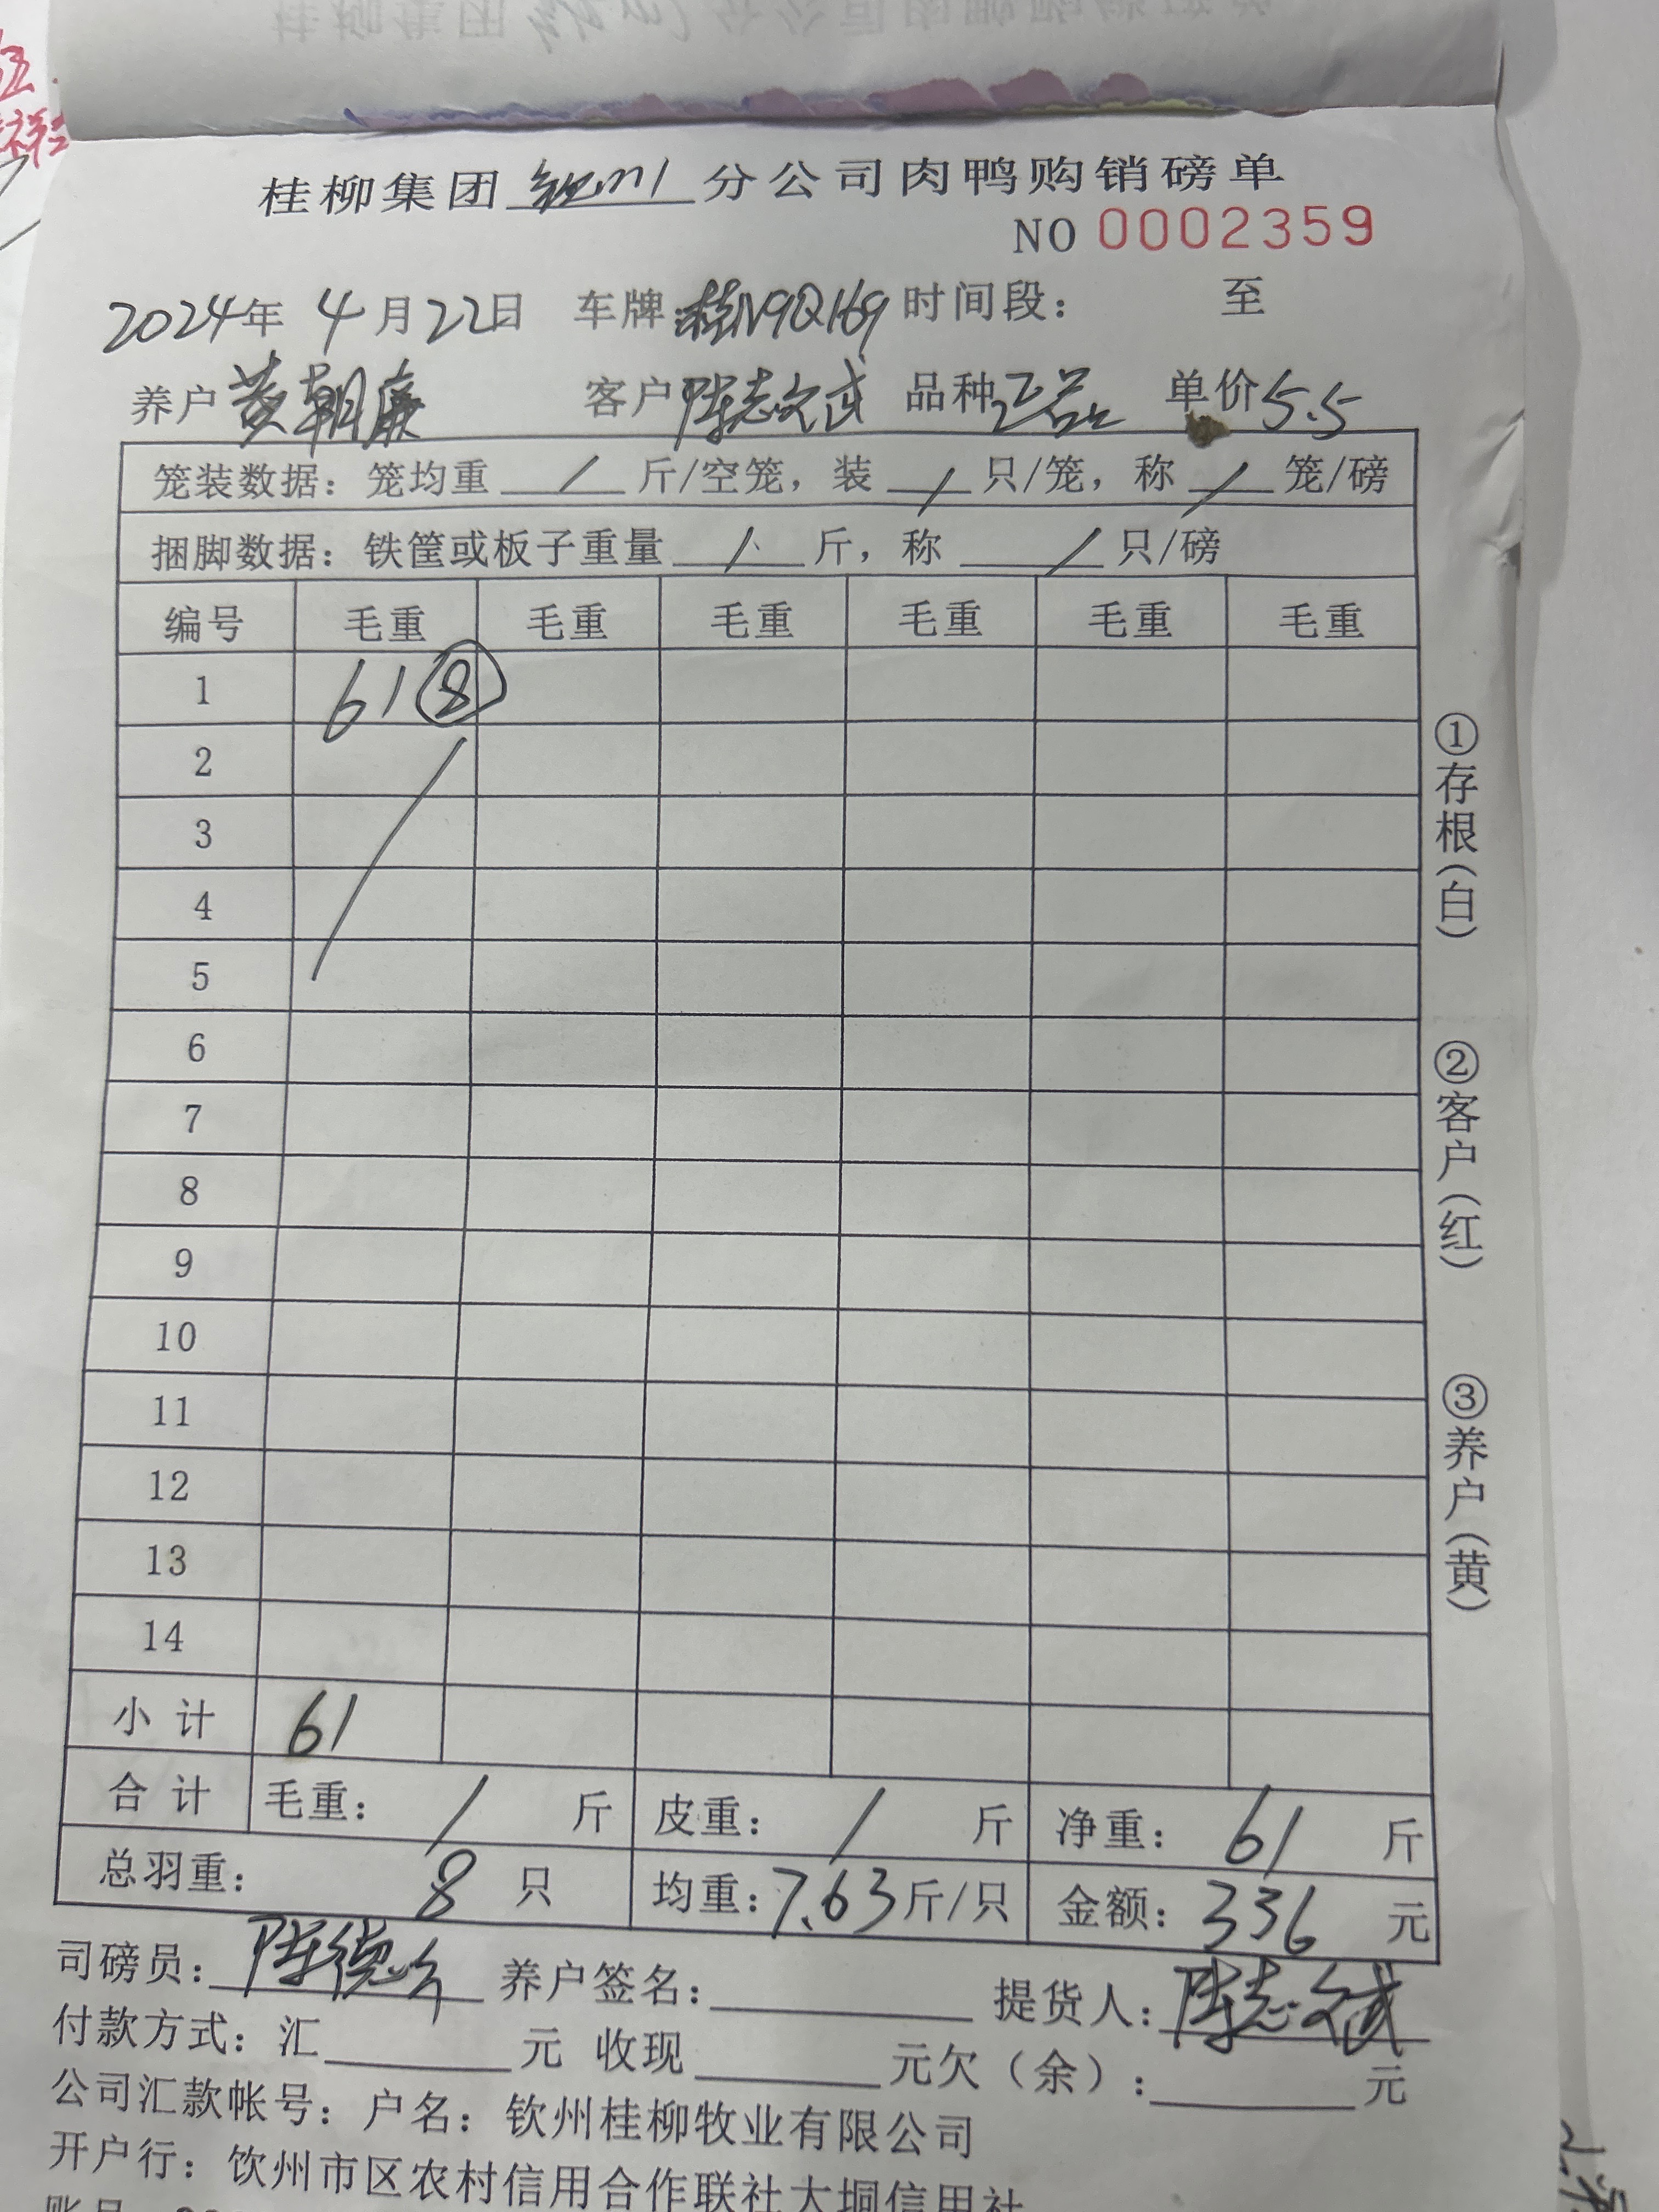 桂柳集团 钦州 分公司肉鸭购销磅单
NO 0002359
2024年 4月22日 车牌:桂N9Q169 时间段: 至
养户 黄朝廉 客户 陈志斌 品种 正品 单价 5.5
笼装数据：笼均重 / 斤/空笼，装 / 只/笼，称 / 笼/磅
捆脚数据：铁筐或板子重量 / 斤，称 / 只/磅
编号 毛重 毛重 毛重 毛重 毛重 毛重
1 61 ⑧
2
3
4
5
6
7
8
9
10
11
12
13
14
小计 61
合计 毛重： / 斤 皮重： / 斤 净重： 61 斤
总羽重： 8 只 均重：7.63斤/只 金额：336 元
司磅员: 陈德 养户签名: 提货人: 陈志斌
付款方式：汇 元 收现 元欠（余）: 元
公司汇款帐号：户名：钦州桂柳牧业有限公司
开户行：饮州市区农村信用合作联社大垌信用社
①存根(白)
②客户(红)
③养户(黄)